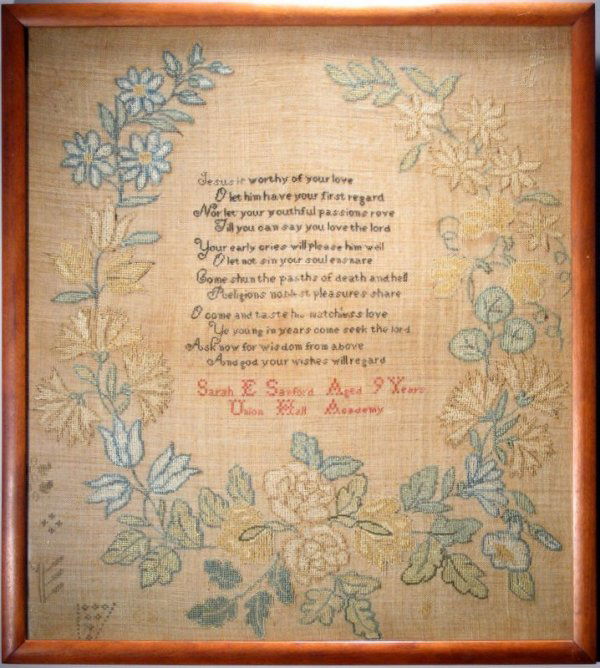 Jesus is worthy of your love
O let him have your first regard
Nor let your youthful passions rove
Till you can say you love the lord
Your early cries will please him well
O let not sin your soul ensnare
Come shun the pasths of death and hell
Religions noblest pleasures share
O come and taste his matchless love
Ye young in years come seek the lord
Ask now for wisdom from above
And god your wishes will regard
Sarah E Sanford Aged 9 Years
Union Hall Academy